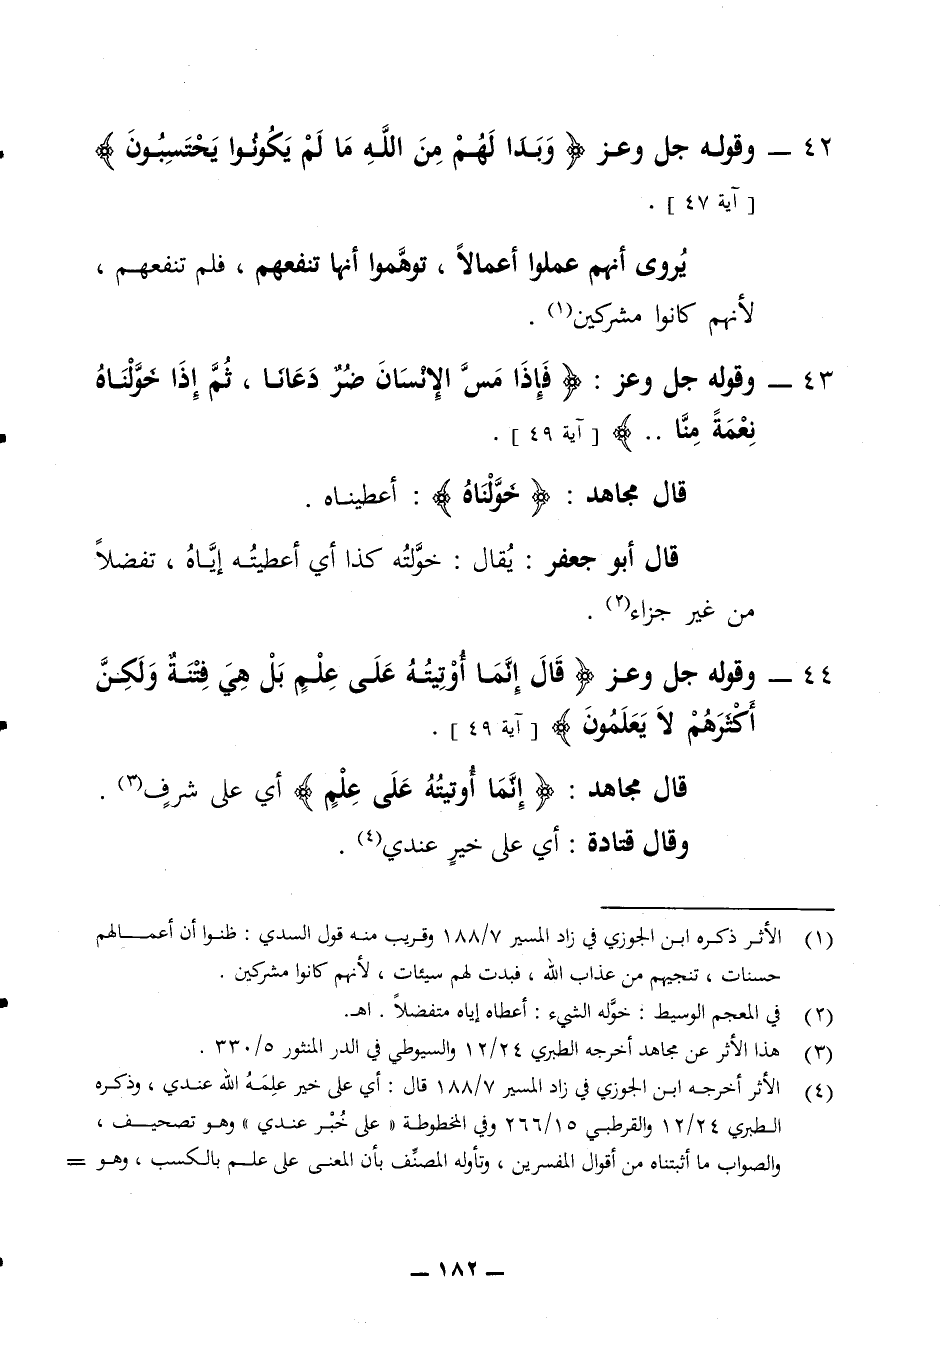 ٤٢ ــ وقوله جل وعز ﴿ وَبَدَا لَهُمْ مِنَ اللَّهِ مَا لَمْ يَكُونُوا يَحْتَسِبُونَ ﴾
[ آية ٤٧ ] .
يُروى أنهم عملوا أعمالاً ، توهَّموا أنها تنفعهم ، فلم تنفعهم ،
لأنهم كانوا مشركين(١) .
٤٣ ــ وقوله جل وعز : ﴿ فَإِذَا مَسَّ الإِنْسَانَ ضُرٌ دَعَانَا ، ثُمَّ إِذَا خَوَّلْنَاهُ
نِعْمَةً مِنَّا .. ﴾ [ آية ٤٩ ] .
قال مجاهد : ﴿ خَوَّلْنَاهُ ﴾ : أعطيناه .
قال أبو جعفر : يُقال : خوَّلتُه كذا أي أعطيتُه إيَّاهُ ، تفضلاً
من غير جزاء(٢) .
٤٤ ــ وقوله جل وعز ﴿ قَالَ إِنَّمَا أُوْتِيتُهُ عَلَى عِلْمٍ بَلْ هِيَ فِتْنَةٌ وَلَكِنَّ
أَكْثَرَهُمْ لاَ يَعَلَمُونَ ﴾ [ آية ٤٩ ] .
قال مجاهد : ﴿ إِنَّمَا أُوتيتُهُ عَلَى عِلْمٍ ﴾ أي على شرفٍ(٣) .
وقال قتادة : أي على خيرٍ عندي(٤) .
(١) الأثر ذكره ابن الجوزي في زاد المسير ١٨٨/٧ وقريب منه قول السدي : ظنوا أن أعمالهم
حسنات ، تنجيهم من عذاب الله ، فبدت لهم سيئات ، لأنهم كانوا مشركين .
(٢) في المعجم الوسيط : خوَّله الشيء : أعطاه إياه متفضلاً . اهـ.
(٣) هذا الأثر عن مجاهد أخرجه الطبري ١٢/٢٤ والسيوطي في الدر المنثور ٣٣٠/٥ .
(٤) الأثر أخرجه ابن الجوزي في زاد المسير ١٨٨/٧ قال : أي على خير علِمَهُ الله عندي ، وذكره
الطبري ١٢/٢٤ والقرطبي ٢٦٦/١٥ وفي المخطوطة « على خُبْر عندي » وهو تصحيف ،
والصواب ما أثبتناه من أقوال المفسرين ، وتأوله المصنِّف بأن المعنى على علم بالكسب ، وهو =
ــ ١٨٢ ــ